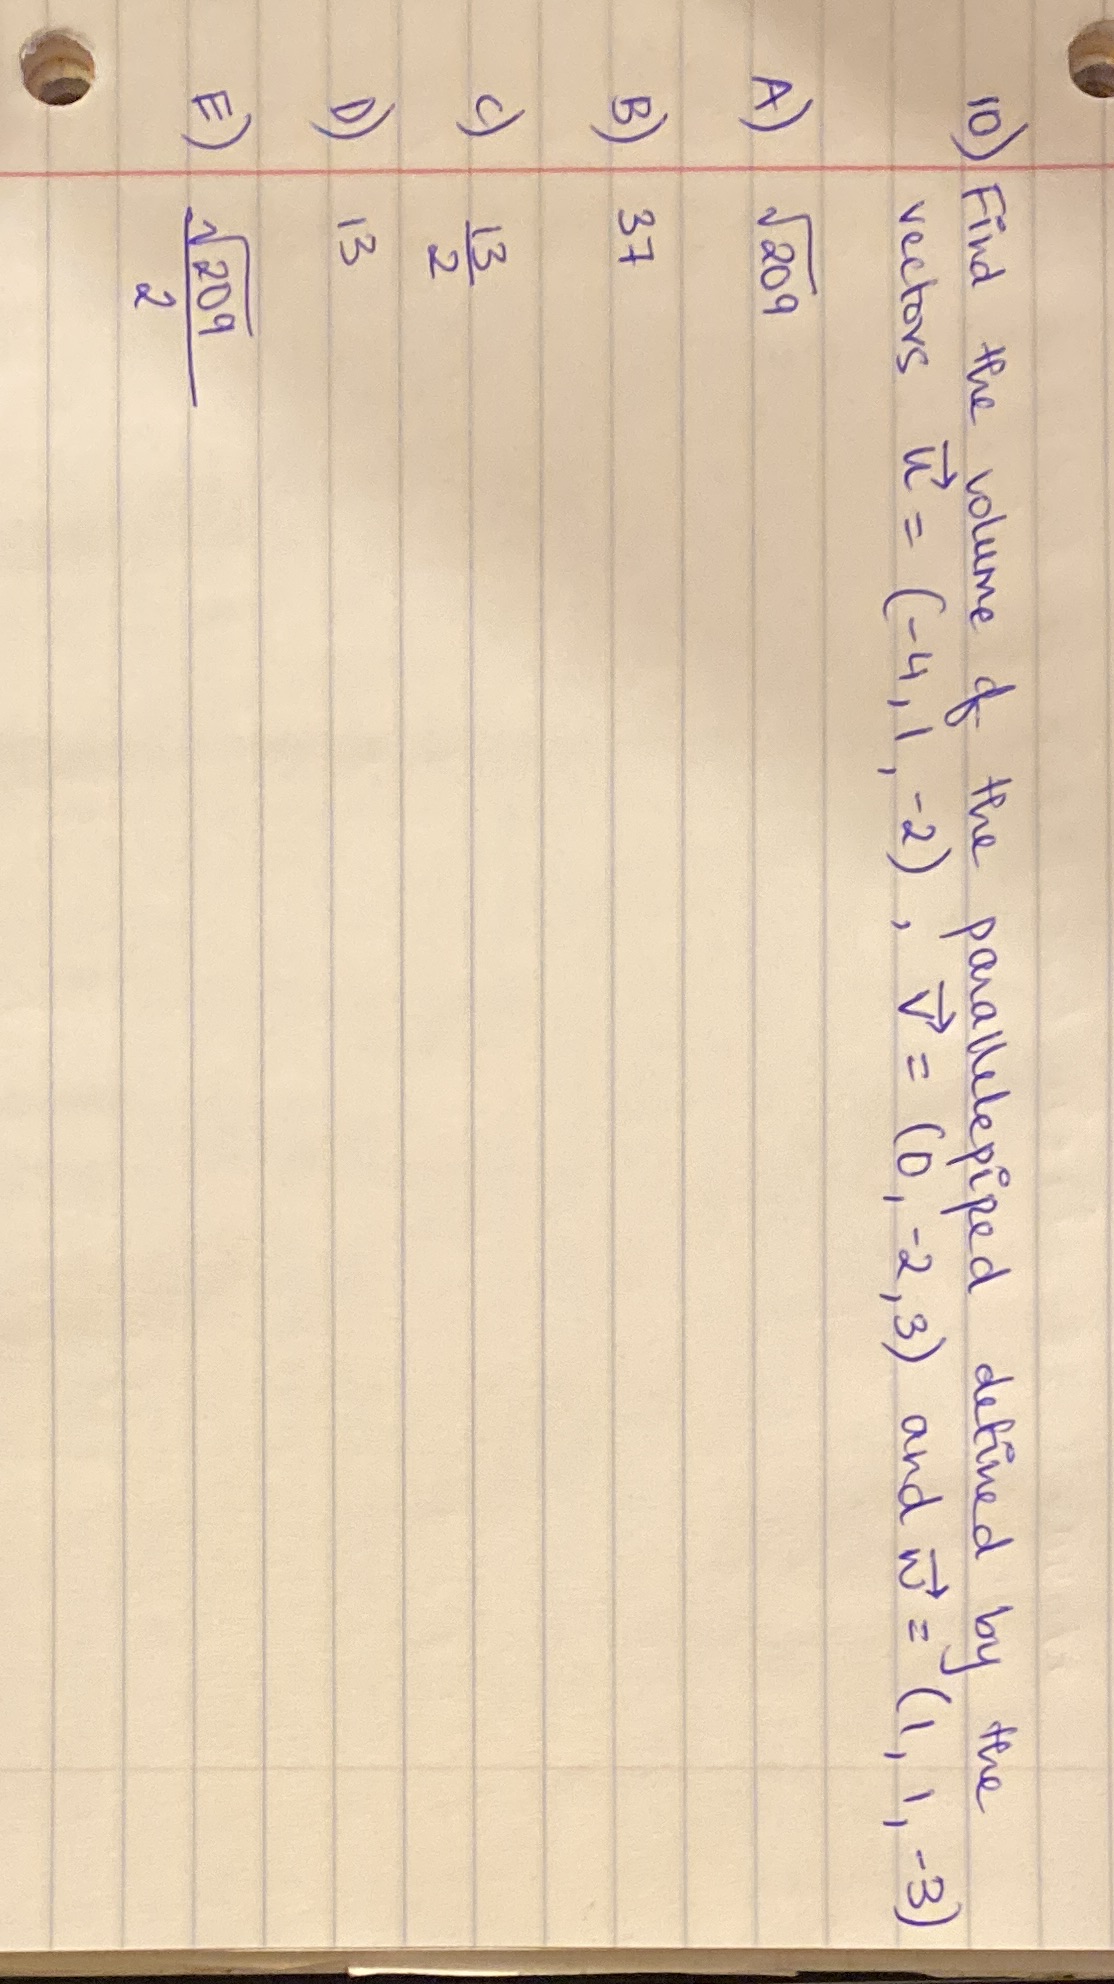 10) Find the volume of the parallelepiped defined by the
vectors u⃗ = (-4, 1, -2), v⃗ = (0, -2, 3) and w⃗ = (1, 1, -3)
A) √209
B) 37
C) 13/2
D) 13
E) √209/2